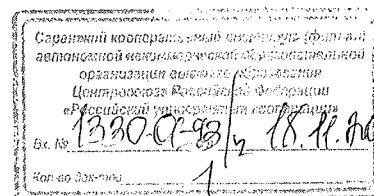 Саранский кооперативный институт (филиал)
автономной некоммерческой образовательной
организации высшего образования
Центросоюза Российской Федерации
«Российский университет кооперации»
Вх. №
18.11.
Кол-во
1